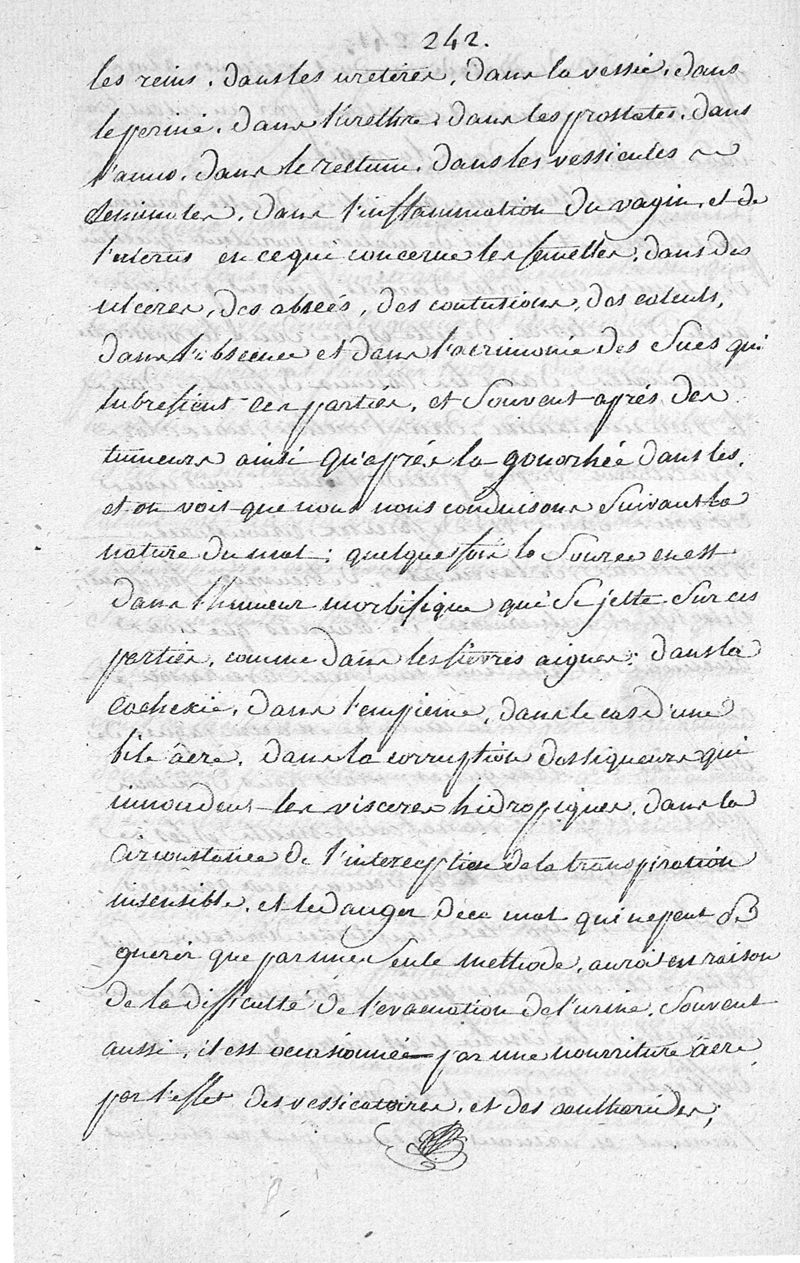 242.
les reins, dans les ureteres, dans la vessie, dans
le periné, dans l'urethre, dans les prostates, dans
l'anus, dans le rectum, dans les vessicules
seminales, dans l'inflammation du vagin, et de
l'uterus en ce qui concerne les femelles, dans des
ulceres, des absées, des contusions, des calculs,
dans l'absence et dans l'acrimonie des sucs qui
lubrefient ces parties, et souvent aprés des
tumeurs ainsi qu'aprés la gonorhée dans les,
et on voit que nous nous conduisons suivant la
nature du mal: quelque fois la source en est
dans l'humeur morbifique qui se jette sur ces
parties, comme dans les fievres aigues; dans la
cachexie, dans l'empieme, dans le cas d'une
bile âcre, dans la corruption des liqueurs qui
innondent les visceres hidropiques, dans la
circonstance de l'interception de la transpiration
insensible, et le danger de ce mal qui ne peut se
guerir que par une seule methode, aura en raison
de la difficulté de l'evacuation de l'urine, souvent
aussi, il est occasionnée par une nourriture âcre
par l'effet des vessicatoires, et des cantharides;